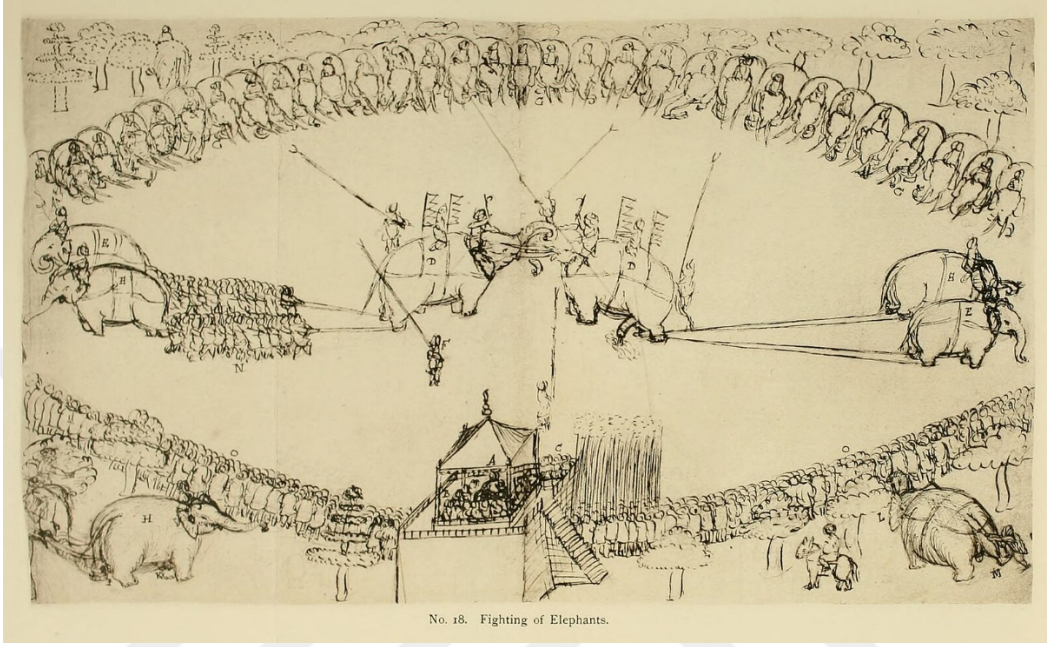 G
G
G
E
H
D
D
H
E
N
A
H
L
M
No. 18. Fighting of Elephants.